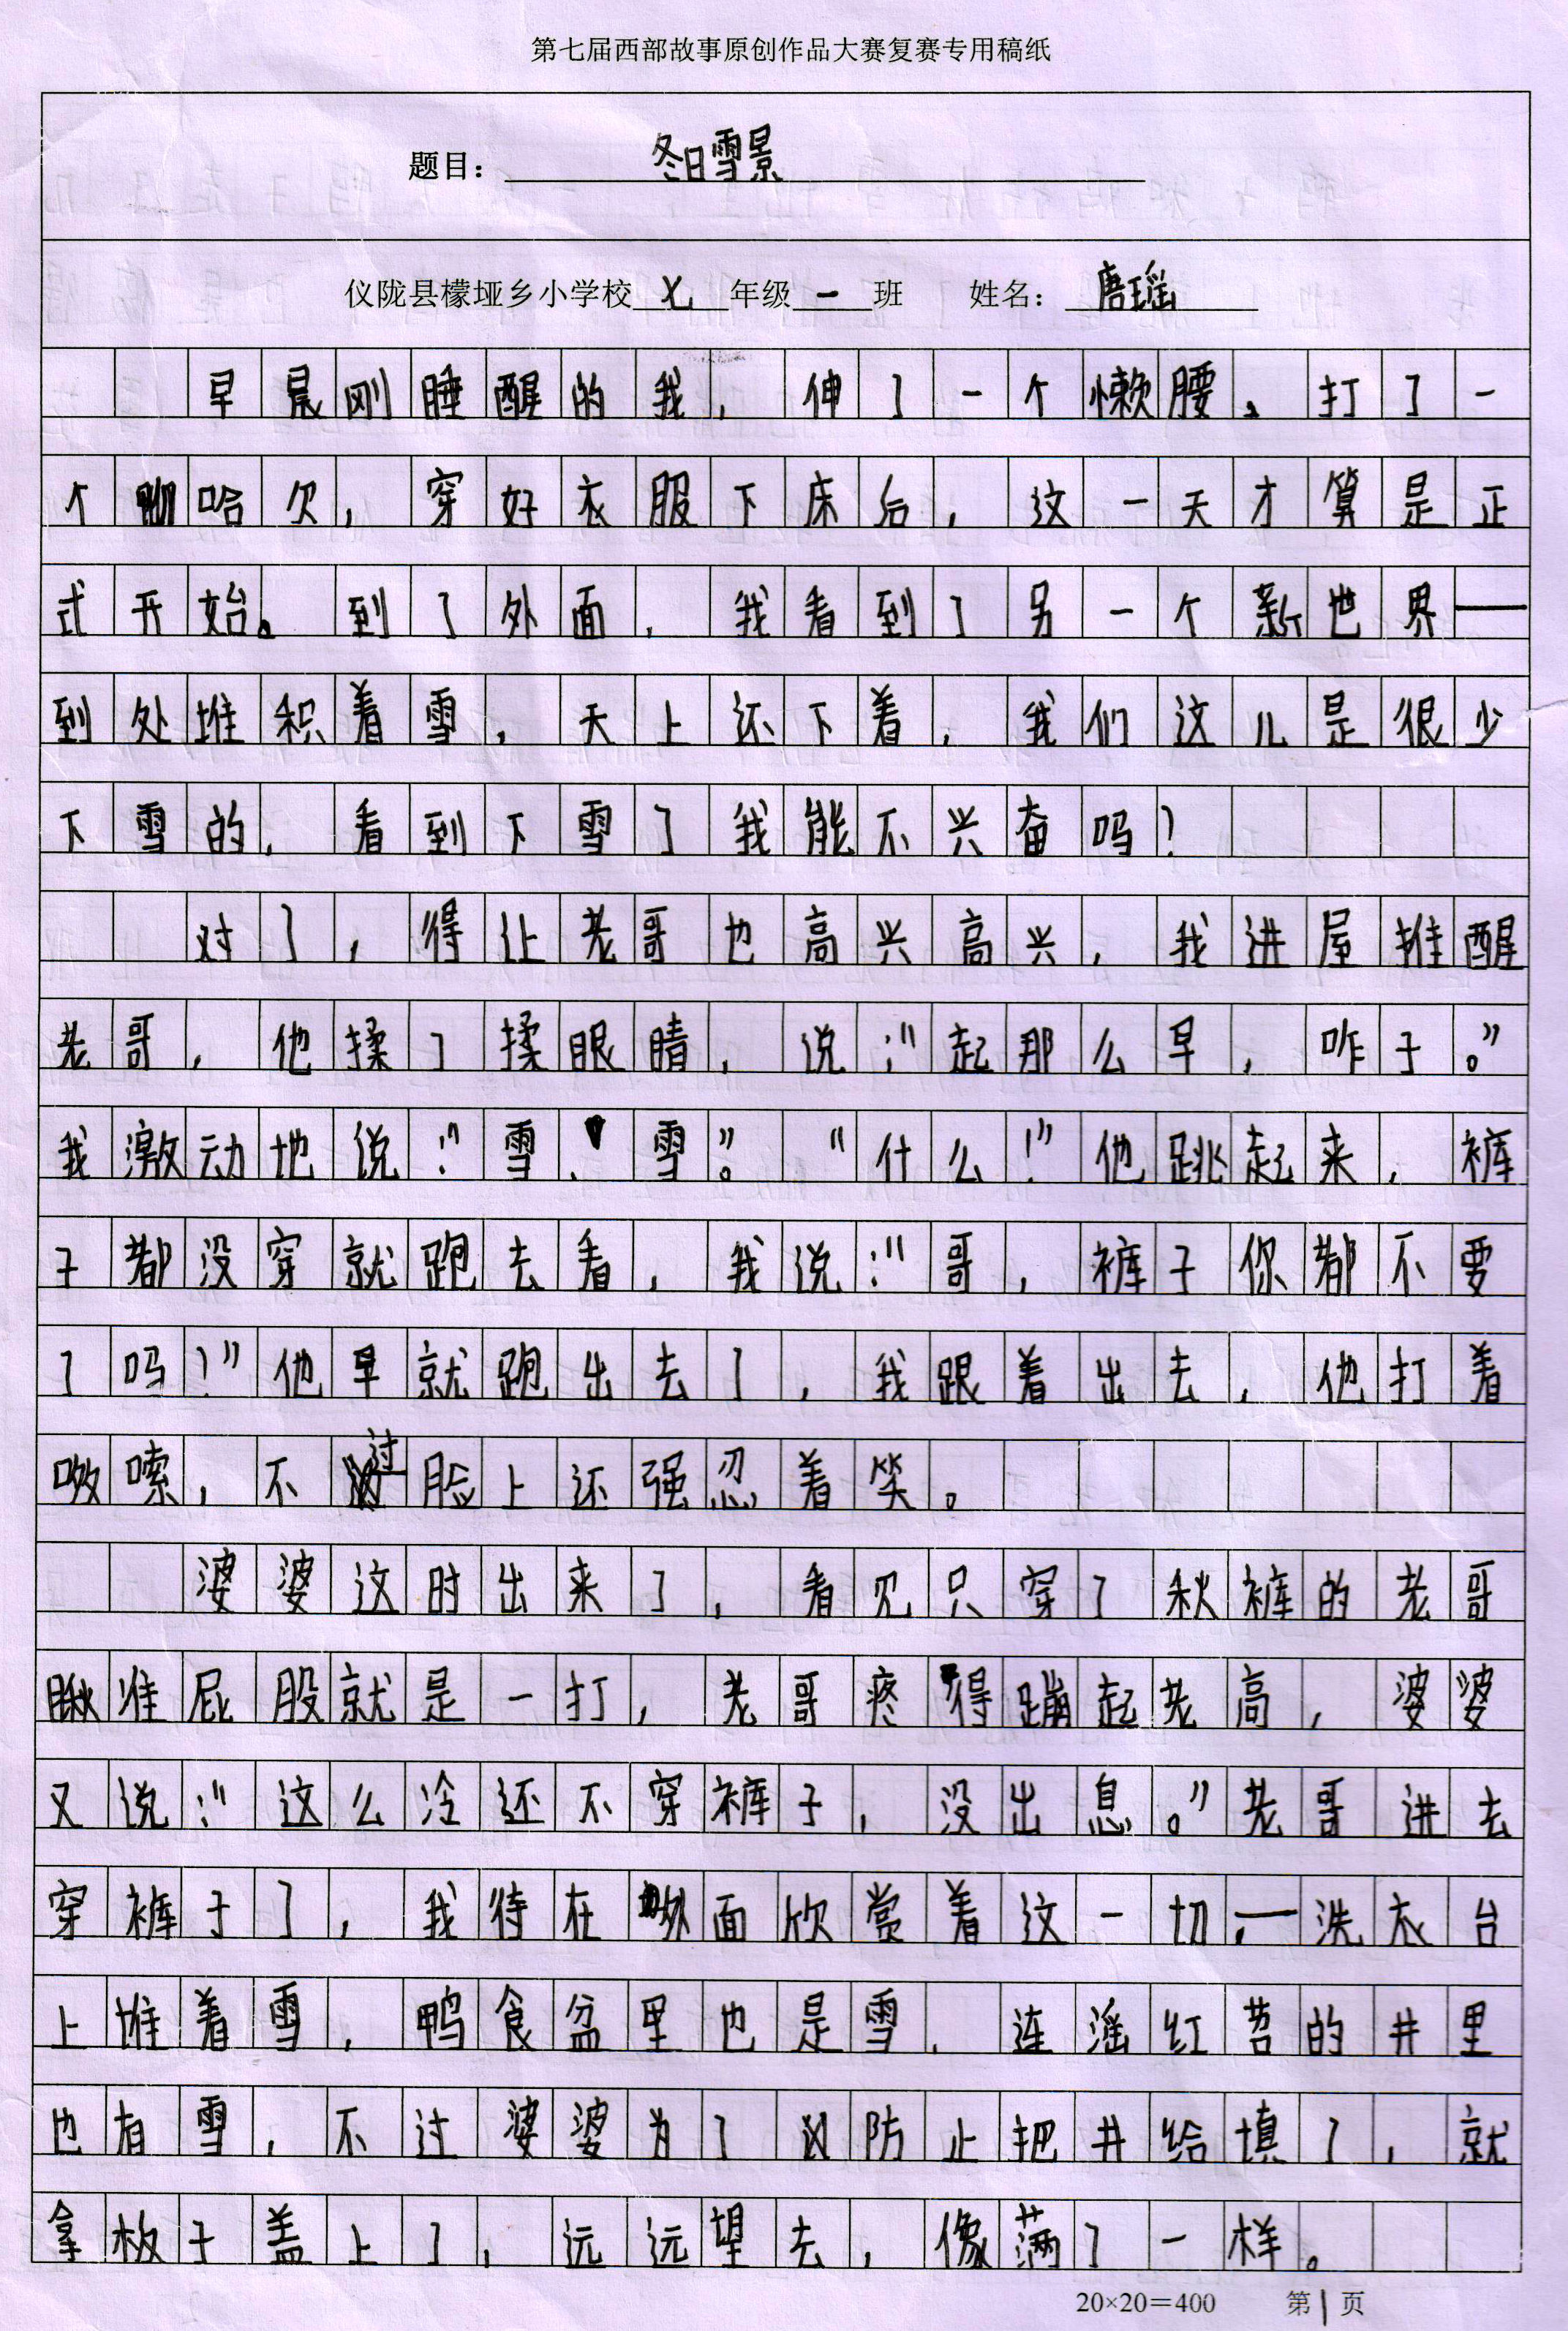 第七届西部故事原创作品大赛复赛专用稿纸
题目：冬日雪景
仪陇县檬垭乡小学校七年级一班 姓名：唐瑶
早晨刚睡醒的我，伸了一个懒腰，打了一
个哈欠，穿好衣服下床后，这一天才算是正
式开始。到了外面，我看到了另一个新世界——
到处堆积着雪，天上还下着，我们这儿是很少
下雪的，看到下雪了我能不兴奋吗？
对了，得让老哥也高兴高兴，我进屋推醒
老哥，他揉了揉眼睛，说：“起那么早，咋于。”
我激动地说：“雪、雪。”“什么！”他跳起来，裤
子都没穿就跑去看，我说：“哥，裤子你都不要
了吗！”他早就跑出去了，我跟着出去，他打着
嗦，不过脸上还强忍着笑。
婆婆这时出来了，看见只穿了秋裤的老哥
瞅准屁股就是一打，老哥疼得蹦起老高，婆婆
又说：“这么冷还不穿裤子，没出息。”老哥进去
穿裤子了，我待在外面欣赏着这一切，—洗衣台
上堆着雪，鸭食盆里也是雪，连淹红苕的井里
也有雪，不过婆婆为了防止把井给填了，就
拿板子盖上了，远远望去，像满了一样。
20×20=400 第1页